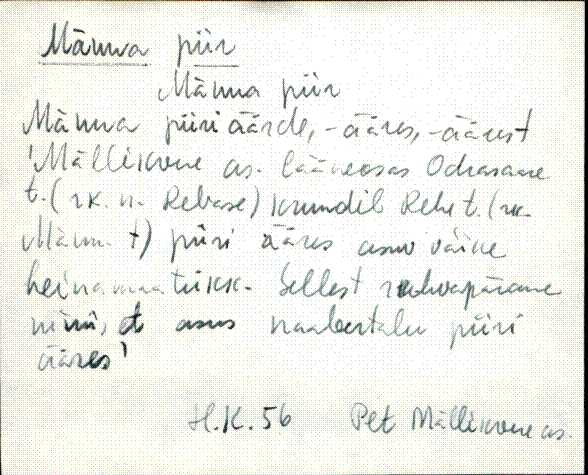 Männa piir
Männa piir
Männa piiri äärde, -ääres, -äärest
'Mällikvere as. lääneosas Odrasaare
t. (rk. n. Rebase) krundil Rehe t. (rk.
Männ. t) piiri ääres asuv väike
heinamaatükk. Sellest rahvapärane
nimi, et asus naabertalu piiri
ääres'
H.K. 56 Pet Mällikvere as.